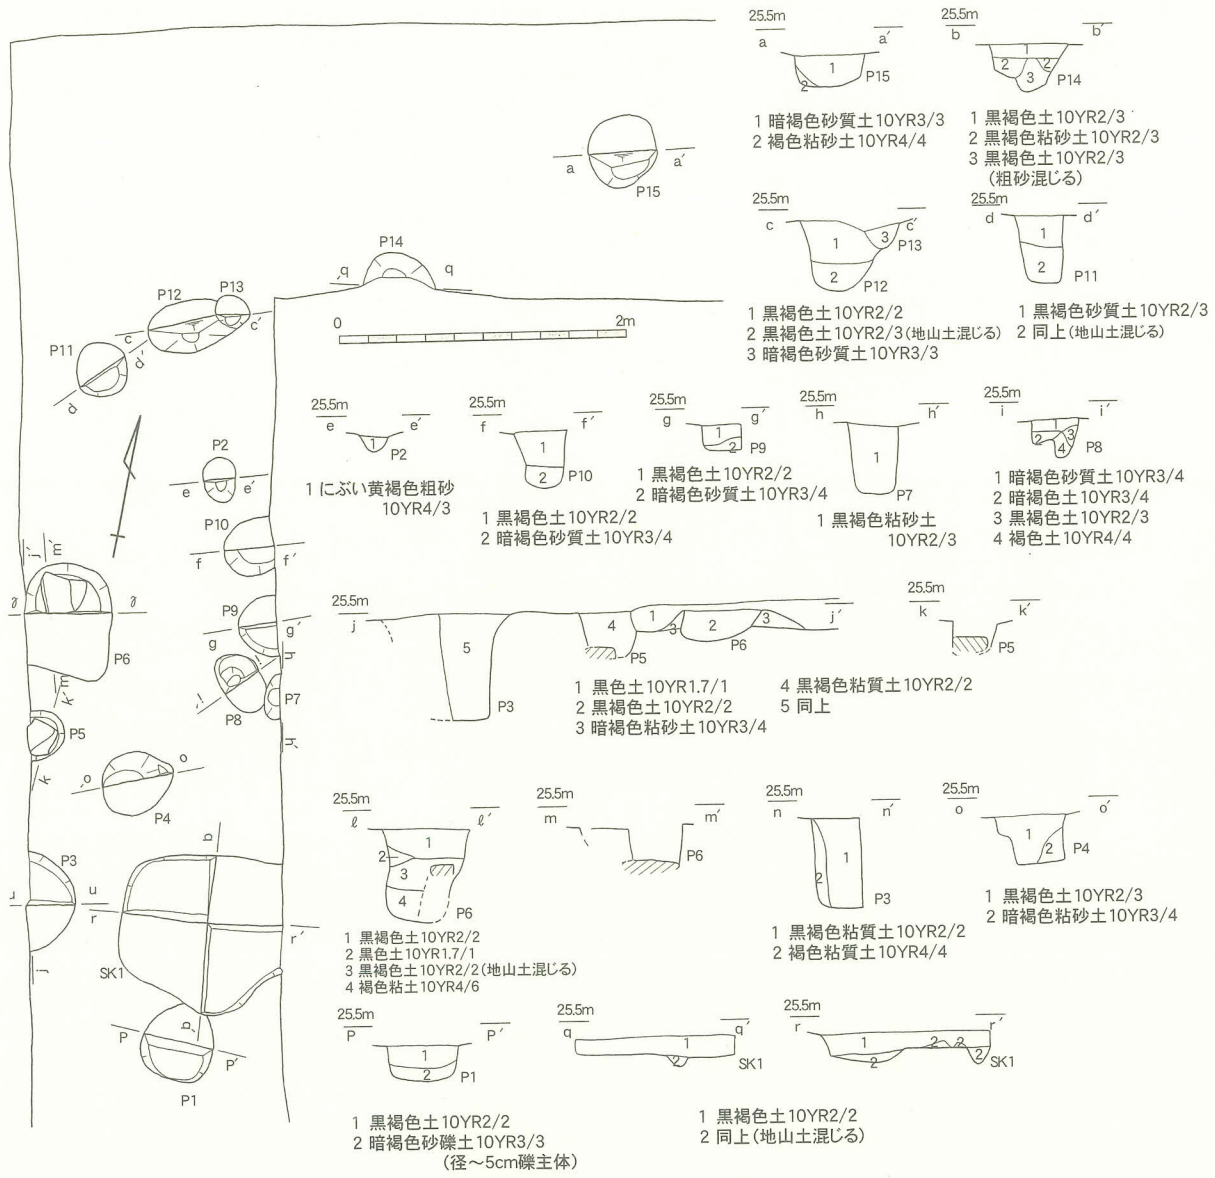 25.5m
a a′
1
2
P15
1 暗褐色砂質土10YR3/3
2 褐色粘砂土10YR4/4
25.5m
b b′
1
2 2
3
P14
1 黒褐色土10YR2/3
2 黒褐色粘砂土10YR2/3
3 黒褐色土10YR2/3
(粗砂混じる)
a a′
P15
25.5m
c c′
1 3
2
P13
P12
1 黒褐色土10YR2/2
2 黒褐色土10YR2/3(地山土混じる)
3 暗褐色砂質土10YR3/3
25.5m
d d′
1
2
P11
1 黒褐色砂質土10YR2/3
2 同上(地山土混じる)
P14
q q
P12 P13
c c′
P11
d d′
0 2m
25.5m
e e′
1
P2
1 にぶい黄褐色粗砂
10YR4/3
25.5m
f f′
1
2
P10
1 黒褐色土10YR2/2
2 暗褐色砂質土10YR3/4
25.5m
g g′
1
2
P9
1 黒褐色土10YR2/2
2 暗褐色砂質土10YR3/4
25.5m
h h′
1
P7
1 黒褐色粘砂土
10YR2/3
25.5m
i i′
1
2 3
4
P8
1 暗褐色砂質土10YR3/4
2 暗褐色土10YR3/4
3 黒褐色土10YR2/3
4 褐色土10YR4/4
P2
e e′
P10
f f′
j′ m′
P6
P9
g g′
h
P8
P7
h′
m
k′
P5
k
o o
P4
25.5m
j j′
5
4
1
3
2
3
P3
P5
P6
1 黒色土10YR1.7/1
2 黒褐色土10YR2/2
3 暗褐色粘砂土10YR3/4
4 黒褐色粘質土10YR2/2
5 同上
25.5m
k k′
P5
25.5m
ℓ ℓ′
1
2
3
4
P6
1 黒褐色土10YR2/2
2 黒色土10YR1.7/1
3 黒褐色土10YR2/2(地山土混じる)
4 褐色粘土10YR4/6
25.5m
m m′
P6
25.5m
n n′
1
2
P3
1 黒褐色粘質土10YR2/2
2 褐色粘質土10YR4/4
25.5m
o o′
1
2
P4
1 黒褐色土10YR2/3
2 暗褐色粘砂土10YR3/4
P3
r r′
j
SK1
P P′
P1
25.5m
P P′
1
2
P1
1 黒褐色土10YR2/2
2 暗褐色砂礫土10YR3/3
(径〜5cm礫主体)
25.5m
q q′
1
2
SK1
25.5m
r r′
1
2 2 2 2
SK1
1 黒褐色土10YR2/2
2 同上(地山土混じる)